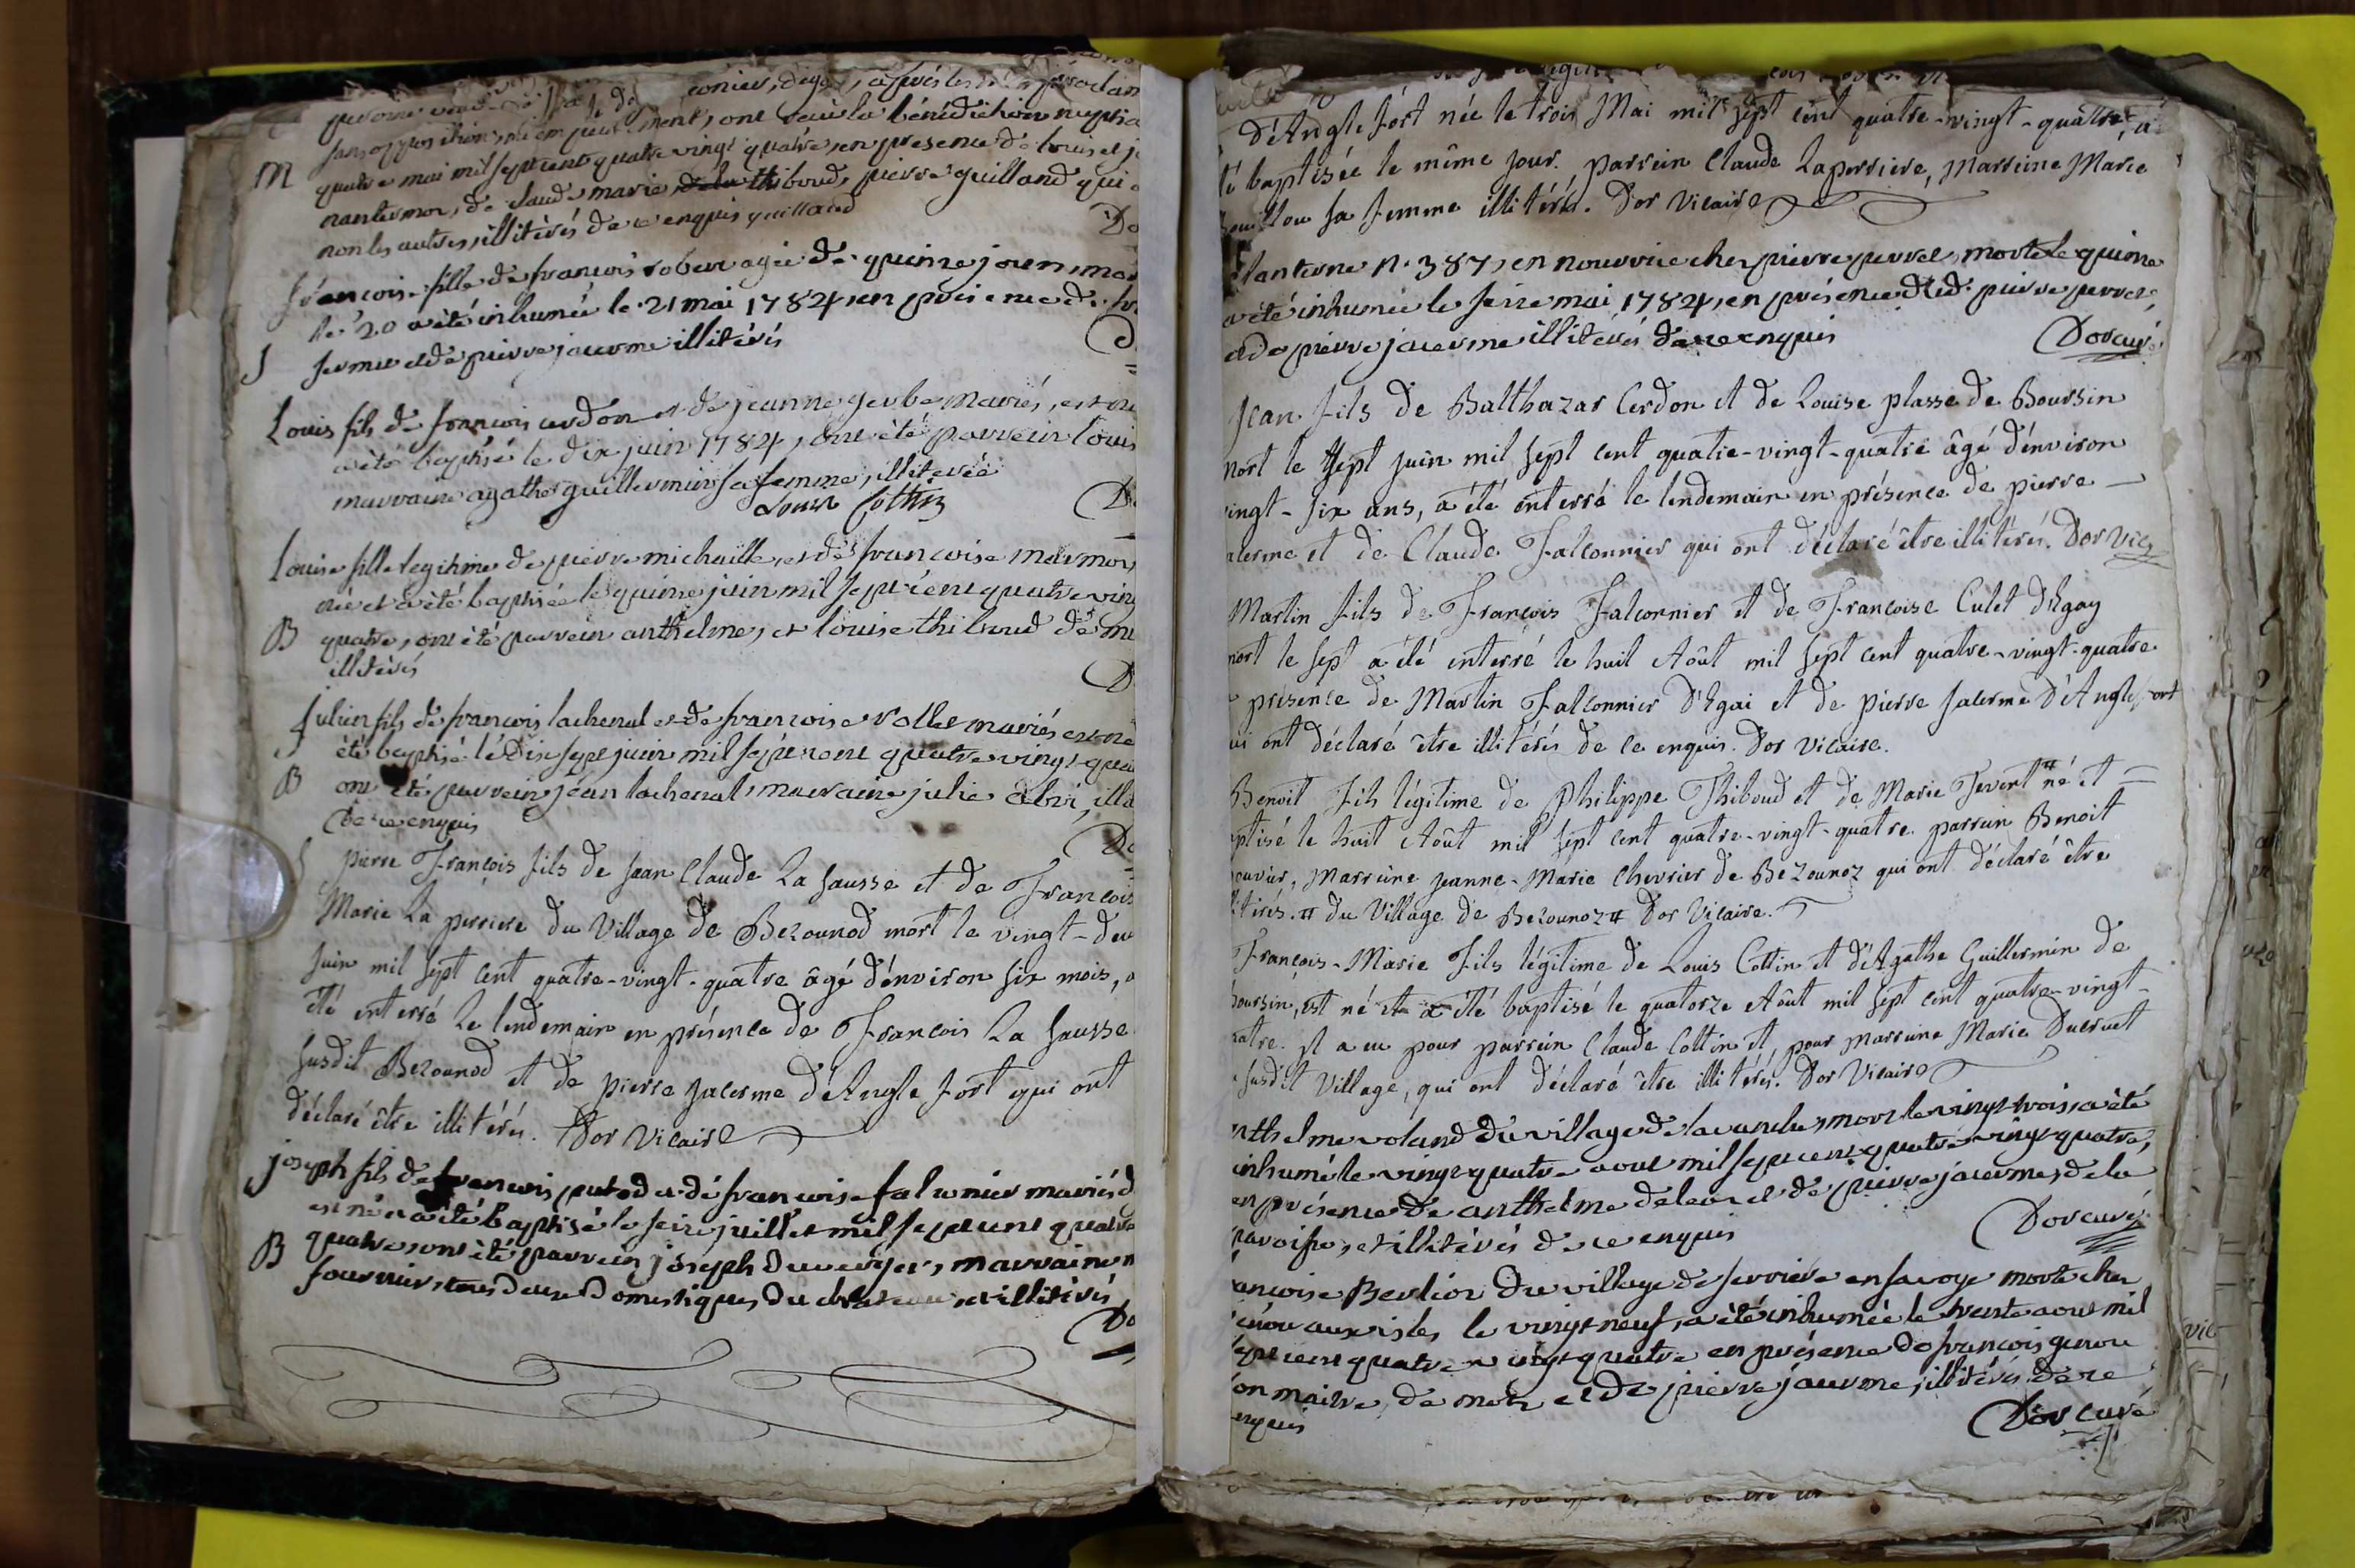 conier, d'égai, après les proclam
sans opposition, ni empechement, ont reçu la bénédiction nuptia
M quatre mai mil sept cent quatre vingt quatre, en presence de louis et j
nantermoz, de claude marie thiboud, pierre guilland qui
non les autres, illitérés de ce enquis guilland
Do
francoise fille de francois agée de quinze jours, mor
le 20 a été inhumée le 21 mai 1784, en présence de
S et de pierre jacerme illitérés
Louis fils de francois cerdon et de jeanne gerbe mariés, est né
a été baptisé le dix juin 1784, ont été parrein louis
marraine agathe guillermin sa femme, illiterée
Louis Cottin
Do
Louise fille legitime de pierre michaille, et de francoise marmou
née et a été baptisée le quinze juin mil sept cent quatre vin
B quatre, ont été parrein anthelme, et louise thiboud de
illitérés
D
Julien fils de francois lachenal et de francoise rollet mariés est né
été baptisé le dix sept juin mil sept cent quatre vingt qua
B ont été parrein jean lachenal, marraine julie illi
de ce enquis
Do
S pierre François fils de Jean Claude La Sausse et de Francois
Marie La perriere du Village de Bezounod mort le vingt-deu
Juin mil sept cent quatre-vingt-quatre âgé d'environ six mois, a
été enterré Le lendemain en présence de François La Sausse
susdit Bezounod et de pierre Jacerme d'Anglefort qui ont
déclaré être illitérés. Dor Vicaire
joseph fils de francois putod et de francoise falconier mariés d
est né et a été baptisé le seize juillet mil sept cent quatre
B quatre, ont été parrein joseph duverger, marraine m
fournier, tous deux domestiques du chateau, et illitérés
Do
d'Anglefort née le trois Mai mil sept cent quatre-vingt-quatre, a
té baptisée le même jour. parrein Claude Laperriere, Marreine Marie
sa femme illitérés. Dor Vicaire
lanterne n. 387, en nourrice chez pierre perret, morte le quinze
a été inhumée le seize mai 1784, en présence dud. pierre perret,
et de pierre jacerme illitérés de ce enquis
Dor curé
Jean fils de Balthazar Cerdon et de Louise plasse de Boursin
mort le sept juin mil sept cent quatre-vingt-quatre âgé d'environ
vingt-six ans, a été enterré le lendemain en présence de pierre
acerme et de Claude Falconnier qui ont déclaré être illitérés. Dor Vic
Martin fils de François Falconnier et de Francoise Culet d'Egay
mort le sept a été enterré le huit Août mil sept cent quatre-vingt-quatre
présence de Martin Falconnier d'Egai et de pierre Jacerme d'Anglefort
ui ont déclaré être illitérés de ce enquis. Dor Vicaire.
Benoit fils légitime de Philippe Thiboud et de Marie Tevent # né et
ptisé le huit Août mil sept cent quatre-vingt-quatre. parrein Benoit
ouvier, Marreine Jeanne-Marie Chevrier de Bezounoz qui ont déclaré être
itérés. # du Village de Bezounoz # Dor Vicaire.
François-Marie Fils légitime de Louis Cottin et d'Agathe Guillermin de
boursin, est né et a été baptisé le quatorze Août mil sept cent quatre-vingt-
atre. il a eu pour parrein Claude Cottin et pour marreine Marie Ducruet
susdit Village, qui ont déclaré être illitérés. Dor Vicaire
nthelme voland du village de lavanche, mort le vingt trois, a été
inhumé le vingt quatre aout mil sept cent quatre vingt quatre,
en présence de anthelme et de pierre jacerme, de la
paroisse, et illitérés de ce enquis
Dor curé
ancoise Berlioz du village de serriere en savoye morte chez
aux isles le vingt neuf, a été inhumée le trente aout mil
sept cent quatre vingt quatre en présence de francois genou
son maitre, et de pierre jacerme, illitérés de ce
enquis
Dor curé